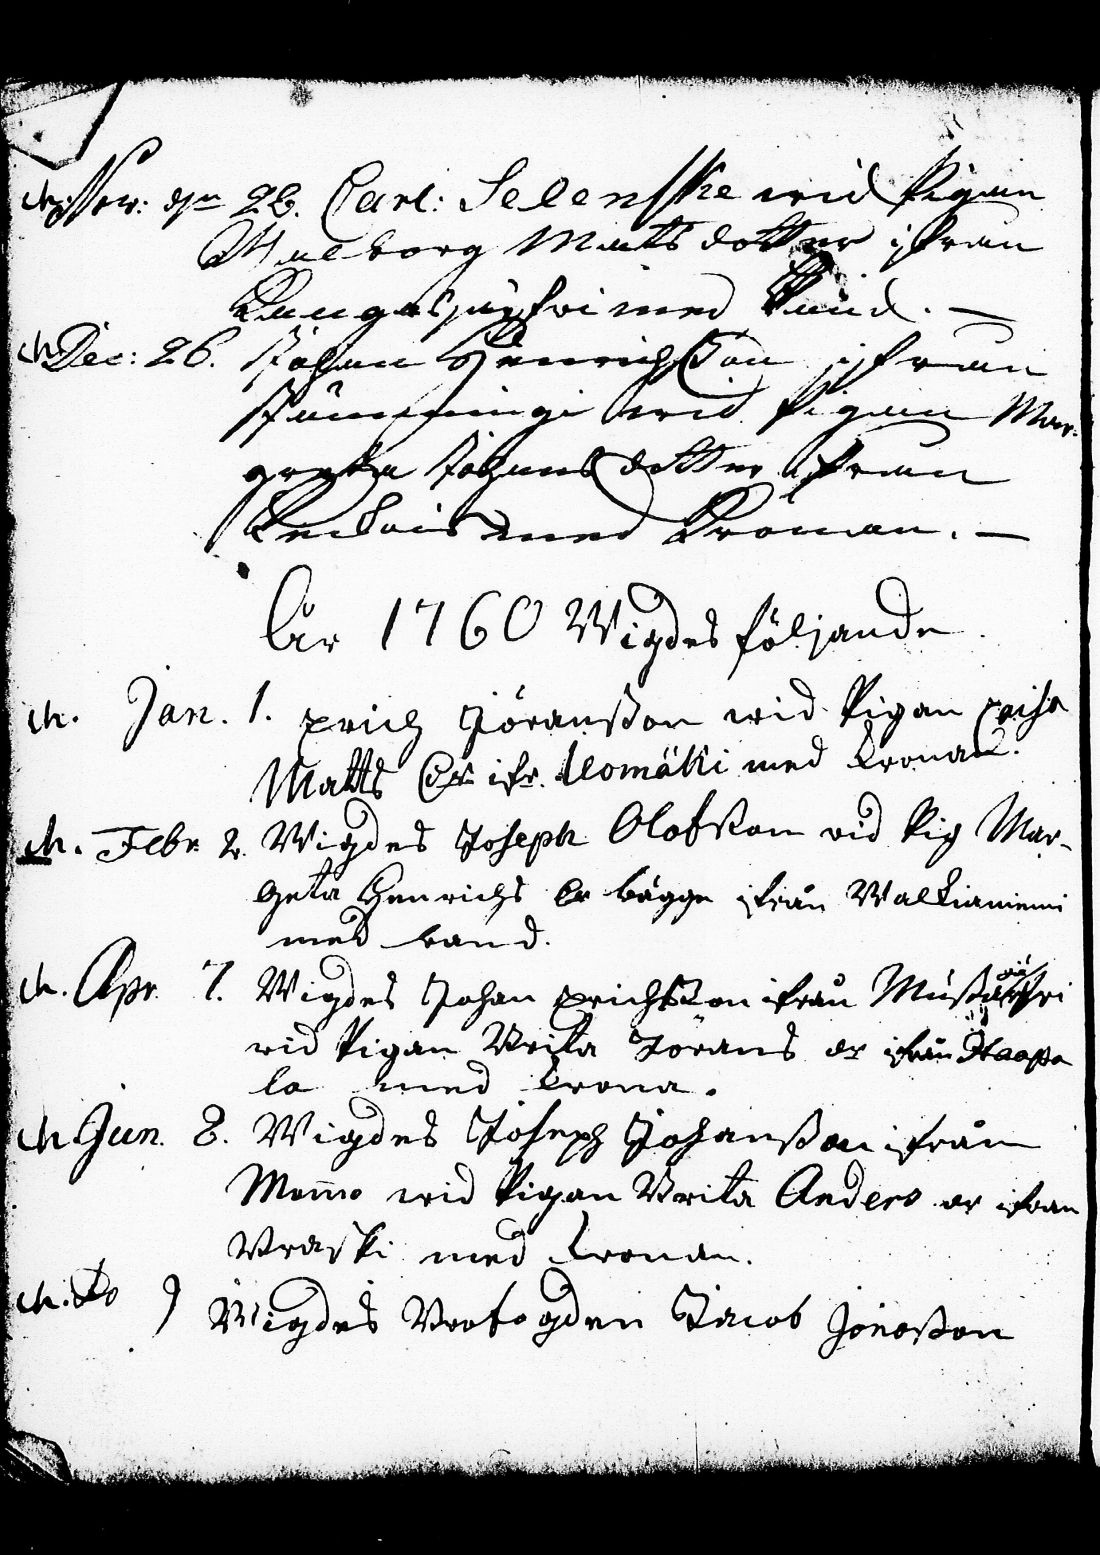 den 26. Carl: Selenske wid Pigan
Walborg Matsdotter ifrån
Kangasjärfwi med Band. —
Dec: 26. Johan Henrichsson ifrån
wid Pigan Mar-
greta Johansdotter ifrån
med Kronan. —
År 1760 Wigdes följande
Jan. 1. Erich Jöransson wid Pigan Caisa
Matts dr ifr. Uomäki med Kronan.
Febr 2. Wigdes Joseph Olofsson wid Pig Mar-
geta Henrichs dr bägge ifrån Walkianiemi
med band.
Apr. 7. Wigdes Johan Erichsson ifrån
wid Pigan Brita Jörans dr ifrån Haapa
la med Krona.
Jun. 8. Wigdes Joseph Johansson ifrån
Mommo wid Pigan Brita Anders dr ifrån
Uraski med Kronan.
Do 9 Wigdes Jacob Jönosson